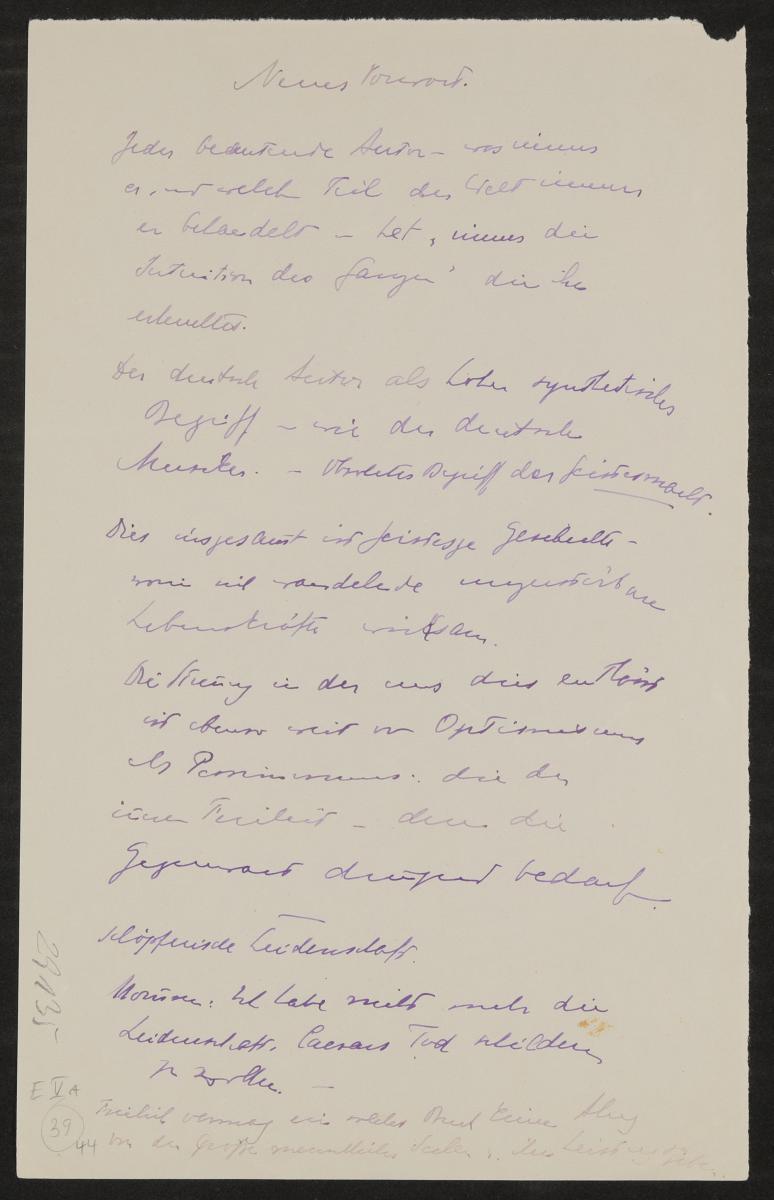 Neues Vorwort.
Jeder bedeutende Autor – was immer
er, und welchen Teil der Welt immer
er behandelt – hat, immer die
Intuition des Ganzen, die ihn
Der deutsche Autor als hoher synthetischer
Begriff – wie der deutsche
Musiker. – Begriff der Geisteswelt.
Dies insgesamt ist Geschichte –
worin viel wandelnde unzerstörbare
Lebenskräfte wirksam.
Die Stimmung in der uns dies entlässt
ist ebenso weit von Optimismus
als Pessimismus: die der
inneren Freiheit – deren die
Gegenwart dringend bedarf.
Schöpferische Leidenschaft.
Mommsen: Ich habe nicht mehr die
Leidenschaft, Caesars Tod schildern
zu wollen. –
Freilich vermag ein solches Buch keine
von der Größe menschlicher Seelen
29135
E V A
39
44